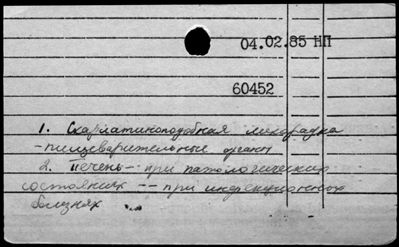 04.02.85 НП
60452
1. Скарлатиноподобная лихорадка
-пищеварительные органы
2. Печень -- при патологических
состояниях -- при инфекционных
болезнях